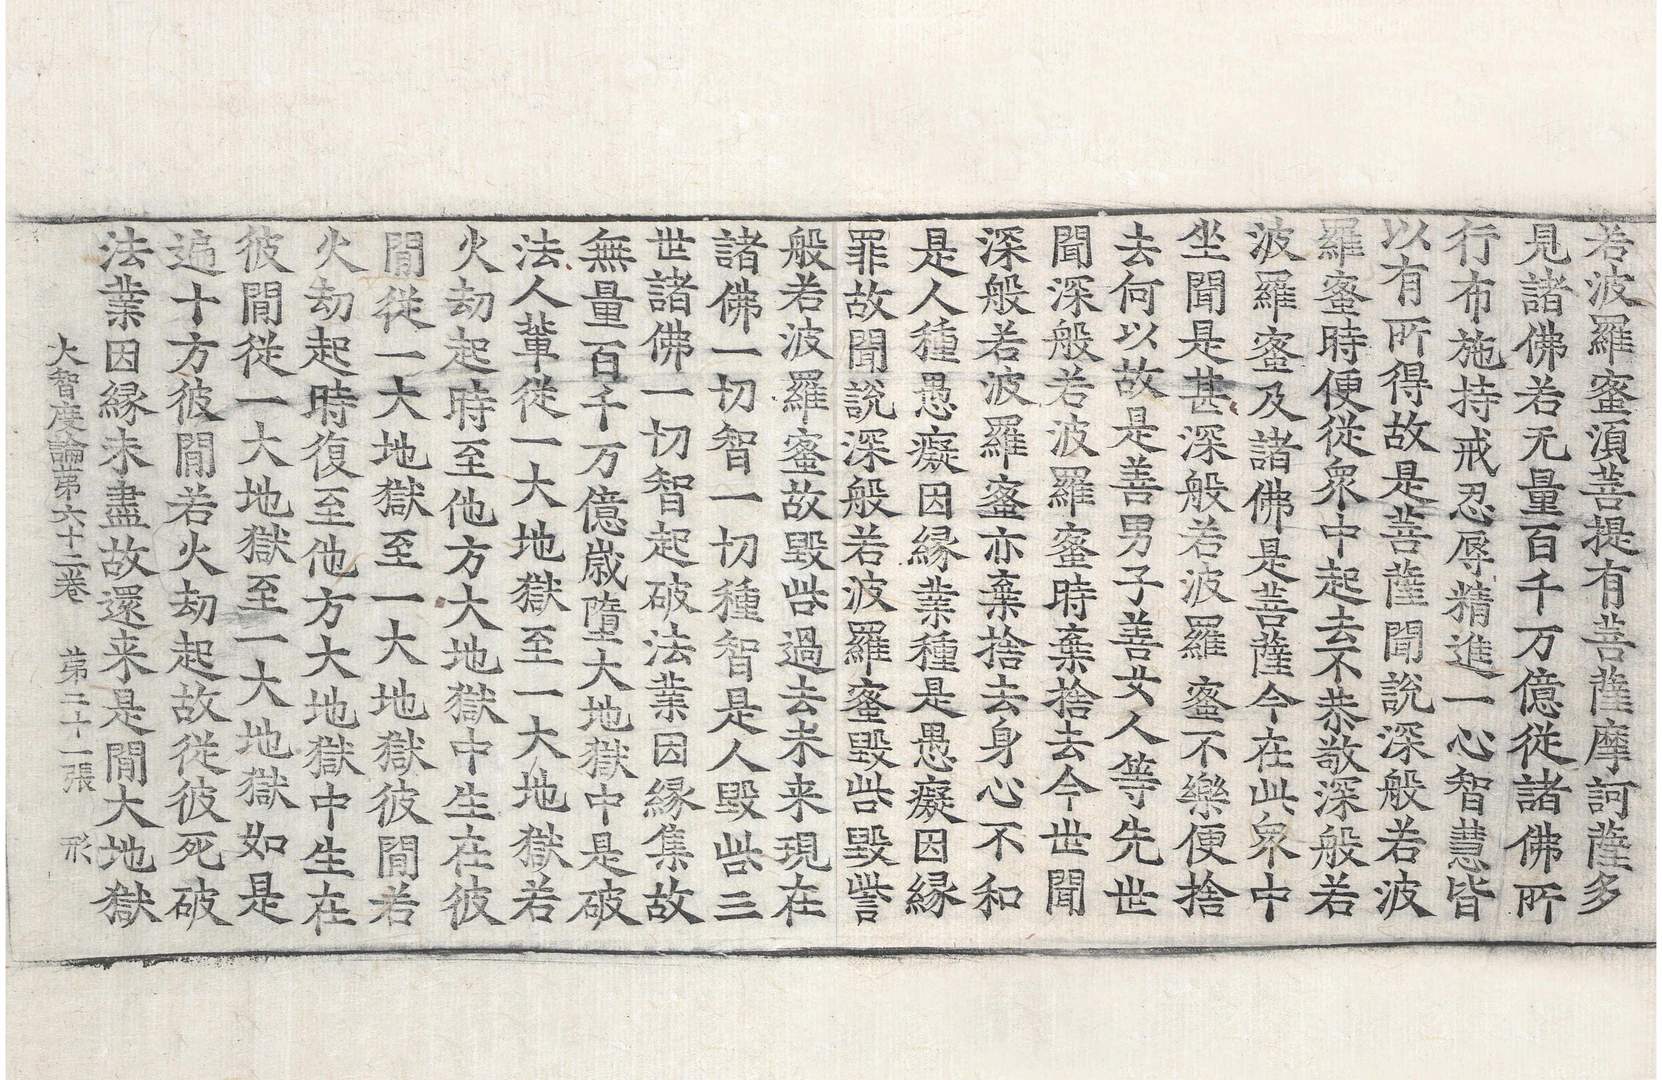 若波羅蜜湏菩提有菩薩摩訶薩多
見諸佛若无量百千万億從諸佛所
行布施持戒忍辱精進一心智慧皆
以有所得故是菩薩聞說深般若波
羅蜜時便從衆中起去不恭敬深般若
波羅蜜及諸佛是菩薩今在此衆中
坐聞是甚深般若波羅蜜不樂便捨
去何以故是善男子善女人等先世
聞深般若波羅蜜時棄捨去今世聞
深般若波羅蜜亦棄捨去身心不和
是人種愚癡因縁業種是愚癡因縁
罪故聞說深般若波羅蜜毀呰毀呰
般若波羅蜜故毀呰過去未来現在
諸佛一切智一切種智是人毀呰三
世諸佛一切智起破法業因縁集故
無量百千万億歲墮大地獄中是破
法人輩從一大地獄至一大地獄若
火劫起時至他方大地獄中生在彼
閒從一大地獄至一大地獄彼閒若
火劫起時復至他方大地獄中生在
彼閒從一大地獄至一大地獄如是
遍十方彼閒若火劫起故從彼死破
法業因縁未盡故還来是閒大地獄
大智度論第六十二卷 第二十一張 形